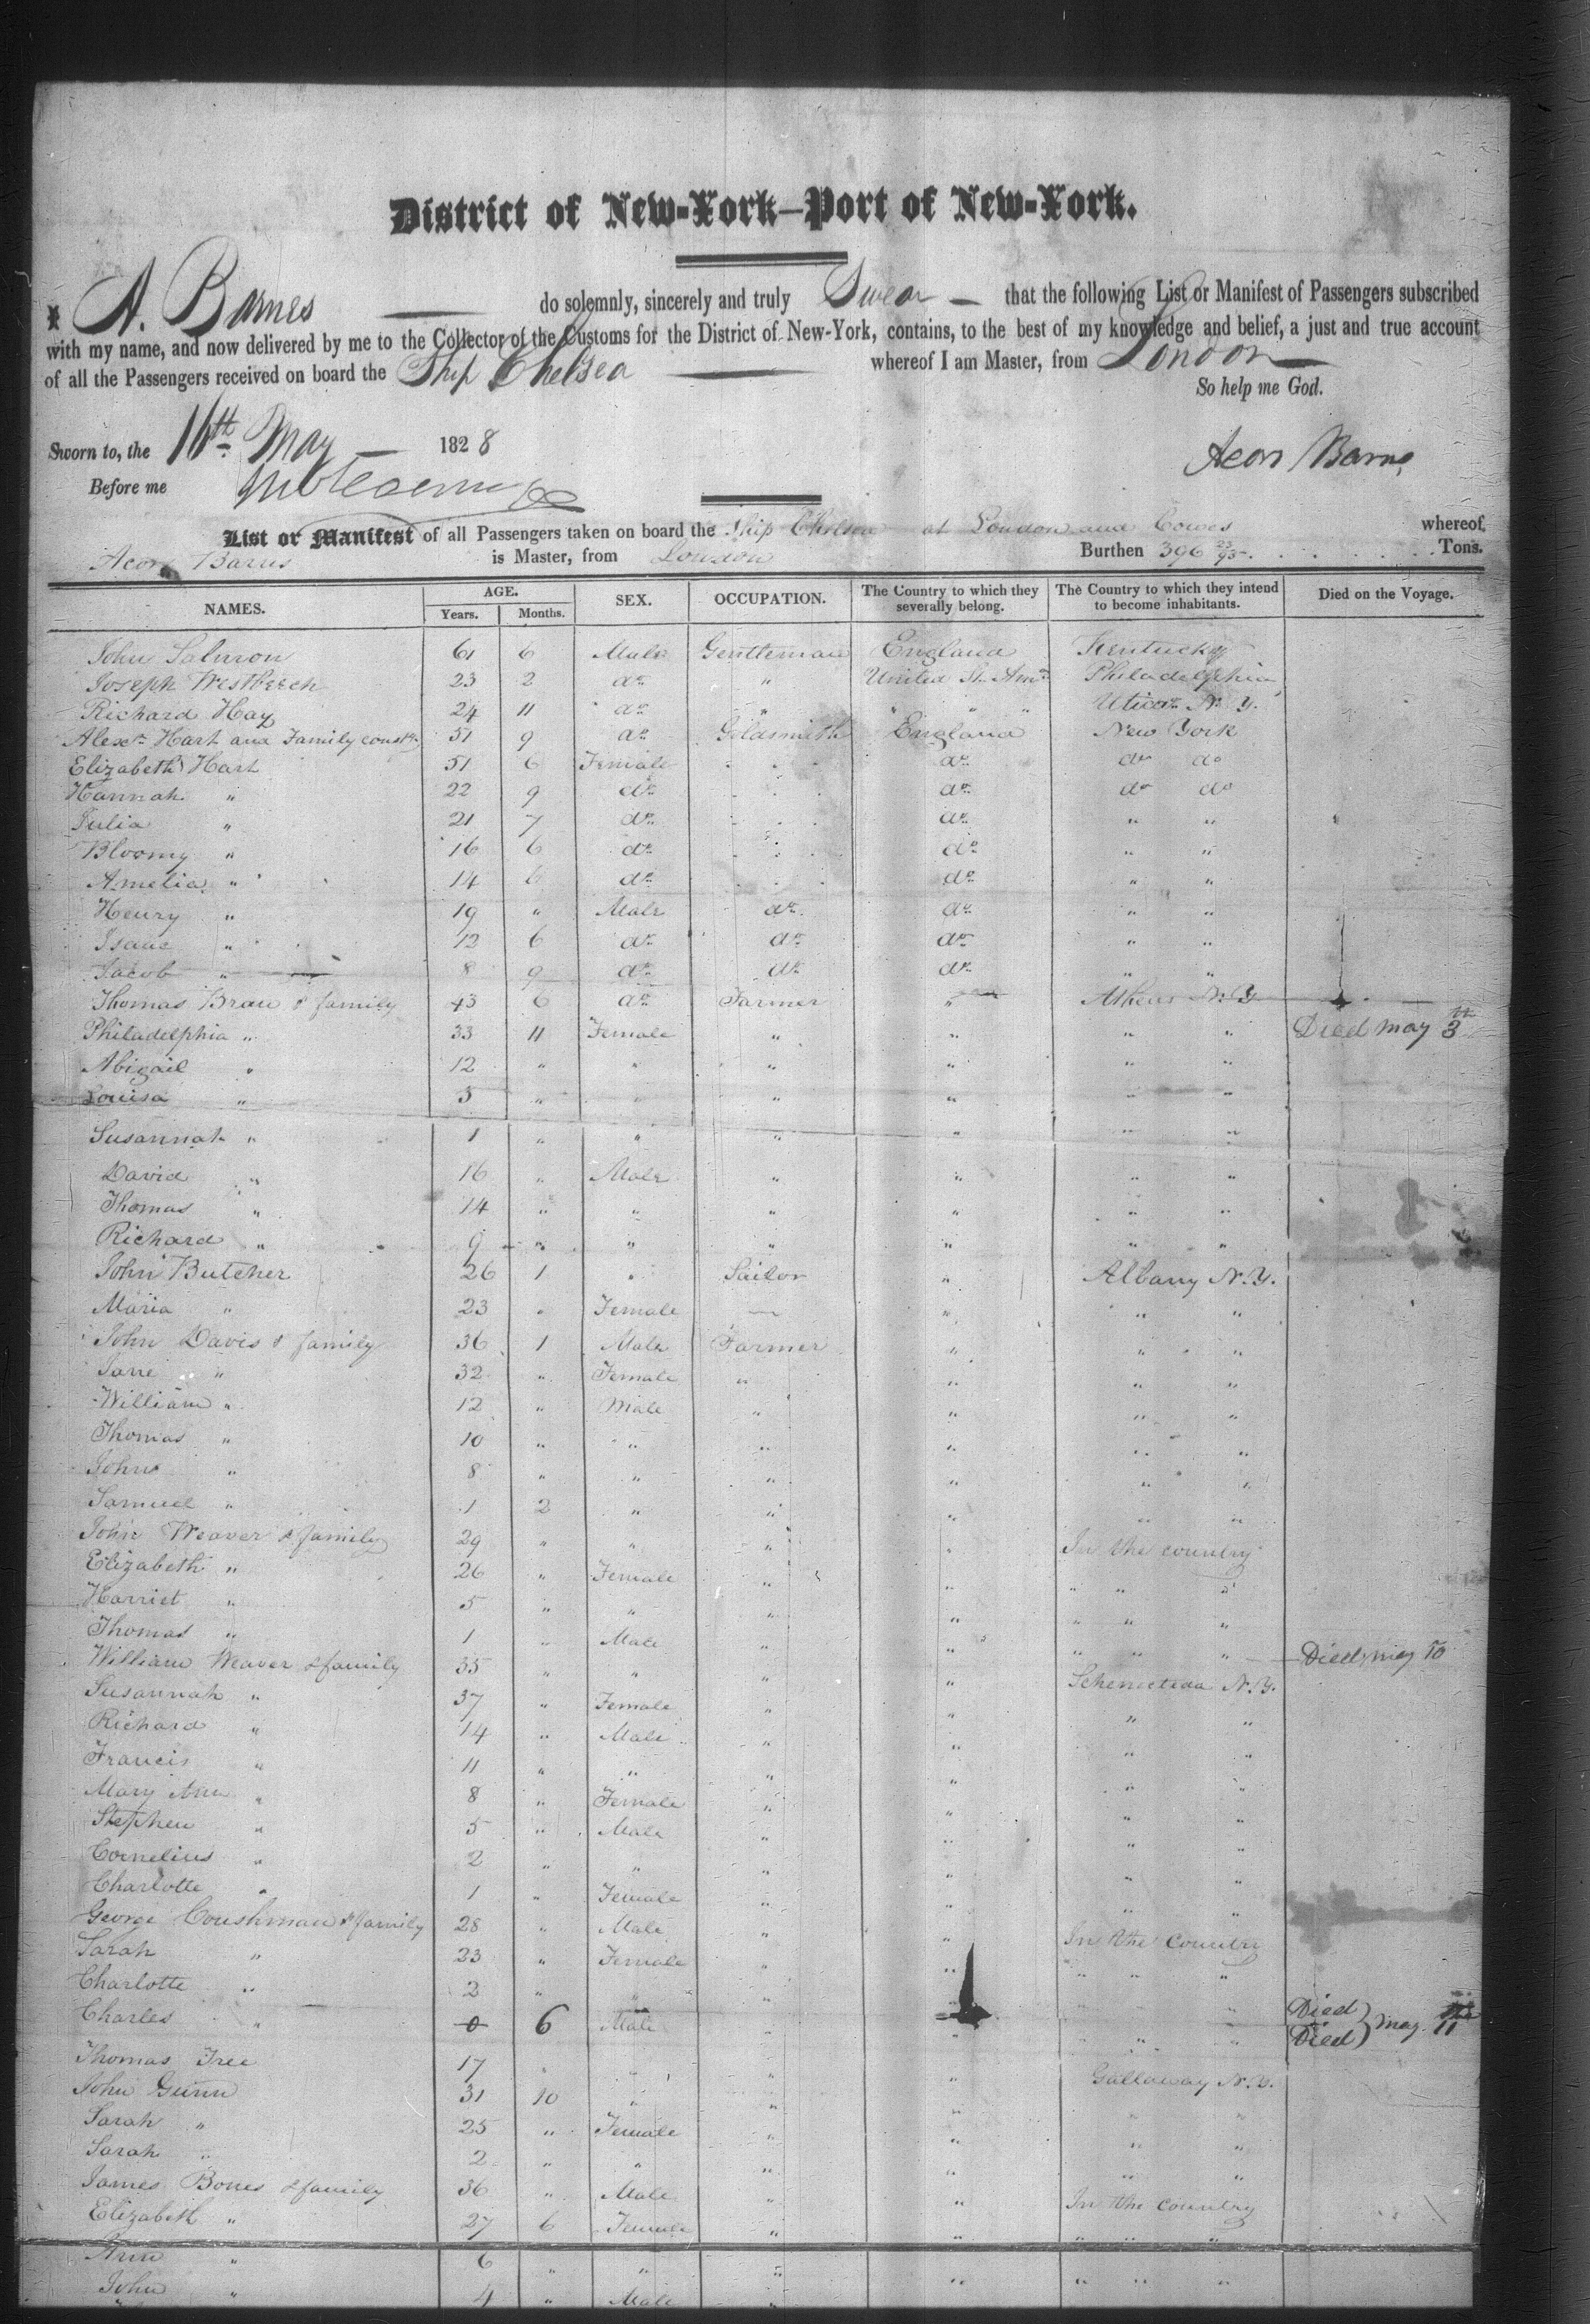 District of New-York—Port of New-York.
A. Barnes do solemnly, sincerely and truly Swear that the following List or Manifest of Passengers subscribed
with my name, and now delivered by me to the Collector of the Customs for the District of New-York, contains, to the best of my knowledge and belief, a just and true account
of all the Passengers received on board the Ship Chelsea whereof I am Master, from London
So help me God.
Sworn to, the 16th May 1828
Before me
Acors Barns
List or Manifest of all Passengers taken on board the Ship Chelsea at London and Cowes whereof
Acors Barns is Master, from London Burthen 396 23/95 Tons.
NAMES. AGE. Years. Months. SEX. OCCUPATION. The Country to which they severally belong. The Country to which they intend to become inhabitants. Died on the Voyage.
John Salmon 61 6 Male Gentleman England Kentucky
Joseph Westbeech 23 2 do " United St. Ama Philadelphia
Richard Hay 24 11 do " " " " Utica N.Y.
Alexr Hart and Family 51 9 do Goldsmith England New York
Elizabeth Hart 51 6 Female do do do
Hannah " 22 9 do do do do
Julia " 21 7 do do " "
Bloomy " 16 6 do do " "
Amelia " 14 6 do do " "
Henry " 19 " Male do do " "
Isaac " 12 6 do do do " "
Jacob " 8 9 do do do " "
Thomas Brau & family 43 6 do Farmer " Athens N.Y
Philadelphia " 33 11 Female " " " " Died May 3
Abigail " 12 " " " " " "
Louisa " 3 " " " " " "
Susannah " 1 " " " " " "
David " 16 " Male " " " "
Thomas " 14 " " " " " "
Richard " 9 " " " " " "
John Butcher 26 1 " Sailor " Albany N.Y.
Maria " 23 " Female — " " "
John Davis & family 36 1 Male Farmer " " "
Jane " 32 " Female " " " "
William " 12 " Male " " " "
Thomas " 10 " " " " " "
John " 8 " " " " " "
Samuel " 1 2 " " " " "
John Weaver & family 29 " " " " In the country
Elizabeth " 26 " Female " " " " "
Harriet " 5 " " " " " " "
Thomas " 1 " Male " " " " " Died May 10
William Weaver & family 35 " " " " Schenectada N.Y.
Susannah " 37 " Female " " " "
Richard " 14 " Male " " " "
Francis " 11 " " " " " "
Mary Ann " 8 " Female " " " "
Stephen " 5 " Male " " " "
Cornelius " 2 " " " " " "
Charlotte " 1 " Female " " " "
George Coushman & family 28 " Male " " In the Country
Sarah " 23 " Female " " " " "
Charlotte " 2 " " " " " Died
Charles " 0 6 Male " " " " Died May 11
Thomas Tree 17 " " " " Galloway N.Y.
John Gunn 31 10 " " " " "
Sarah " 25 " Female " " " "
Sarah " 2 " " " " " "
James Bones & family 36 " Male " " In the Country
Elizabeth " 27 6 Female " " " " "
Ann " 6 " " " " " " "
John " 4 " Male "